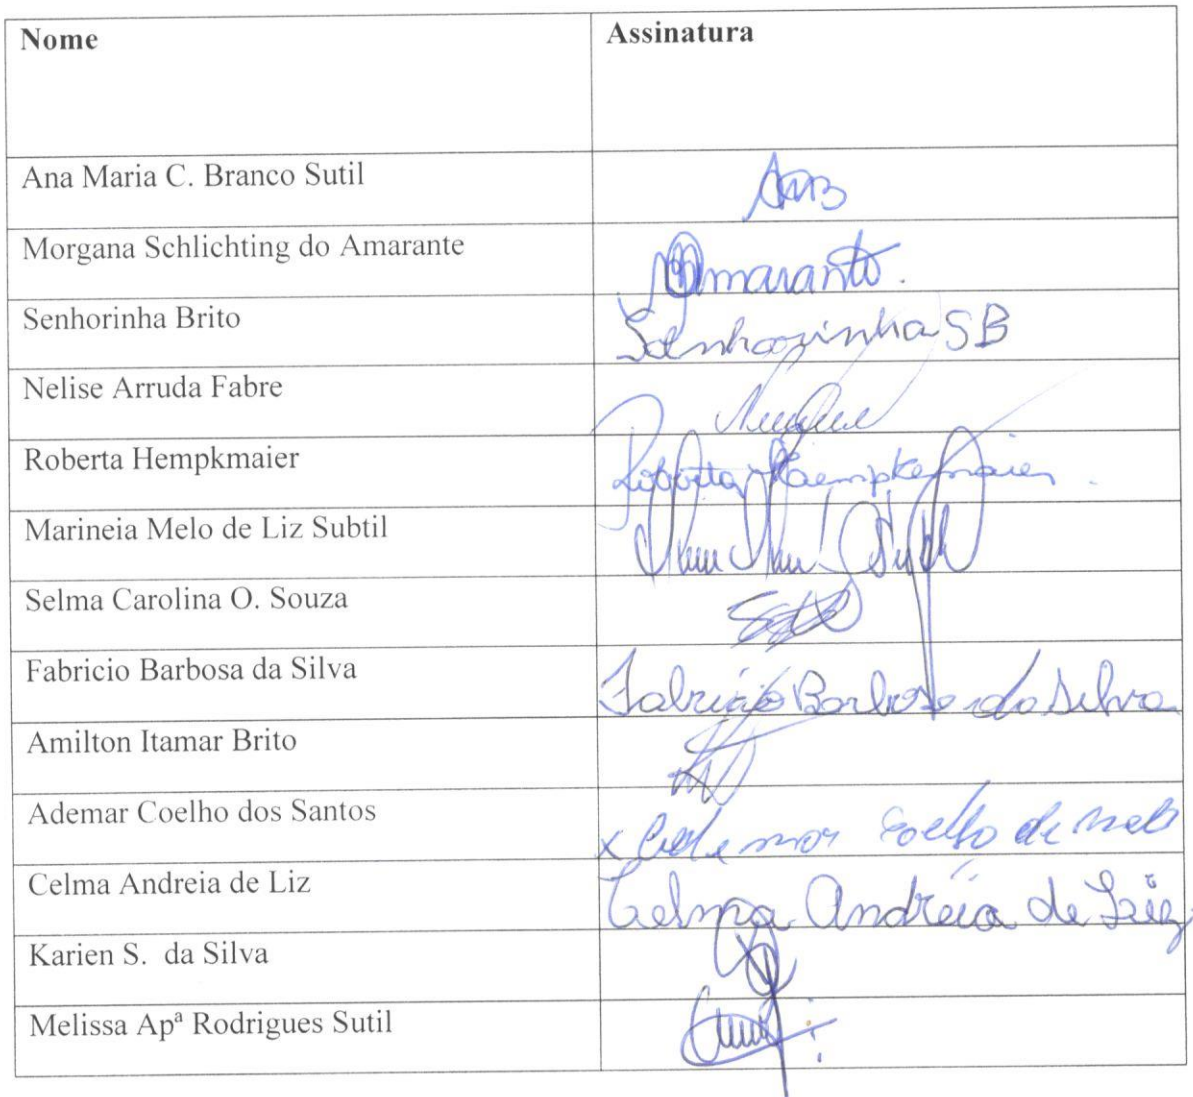 Nome Assinatura
Ana Maria C. Branco Sutil AMB
Morgana Schlichting do Amarante Amarante.
Senhorinha Brito Senhorinha SB
Nelise Arruda Fabre
Roberta Hempkmaier Roberta Haempkemaier.
Marineia Melo de Liz Subtil
Selma Carolina O. Souza
Fabricio Barbosa da Silva Fabricio Barbosa da Silva
Amilton Itamar Brito
Ademar Coelho dos Santos x Ademar Coelho de
Celma Andreia de Liz Celma Andréia de Liz
Karien S. da Silva
Melissa Apª Rodrigues Sutil